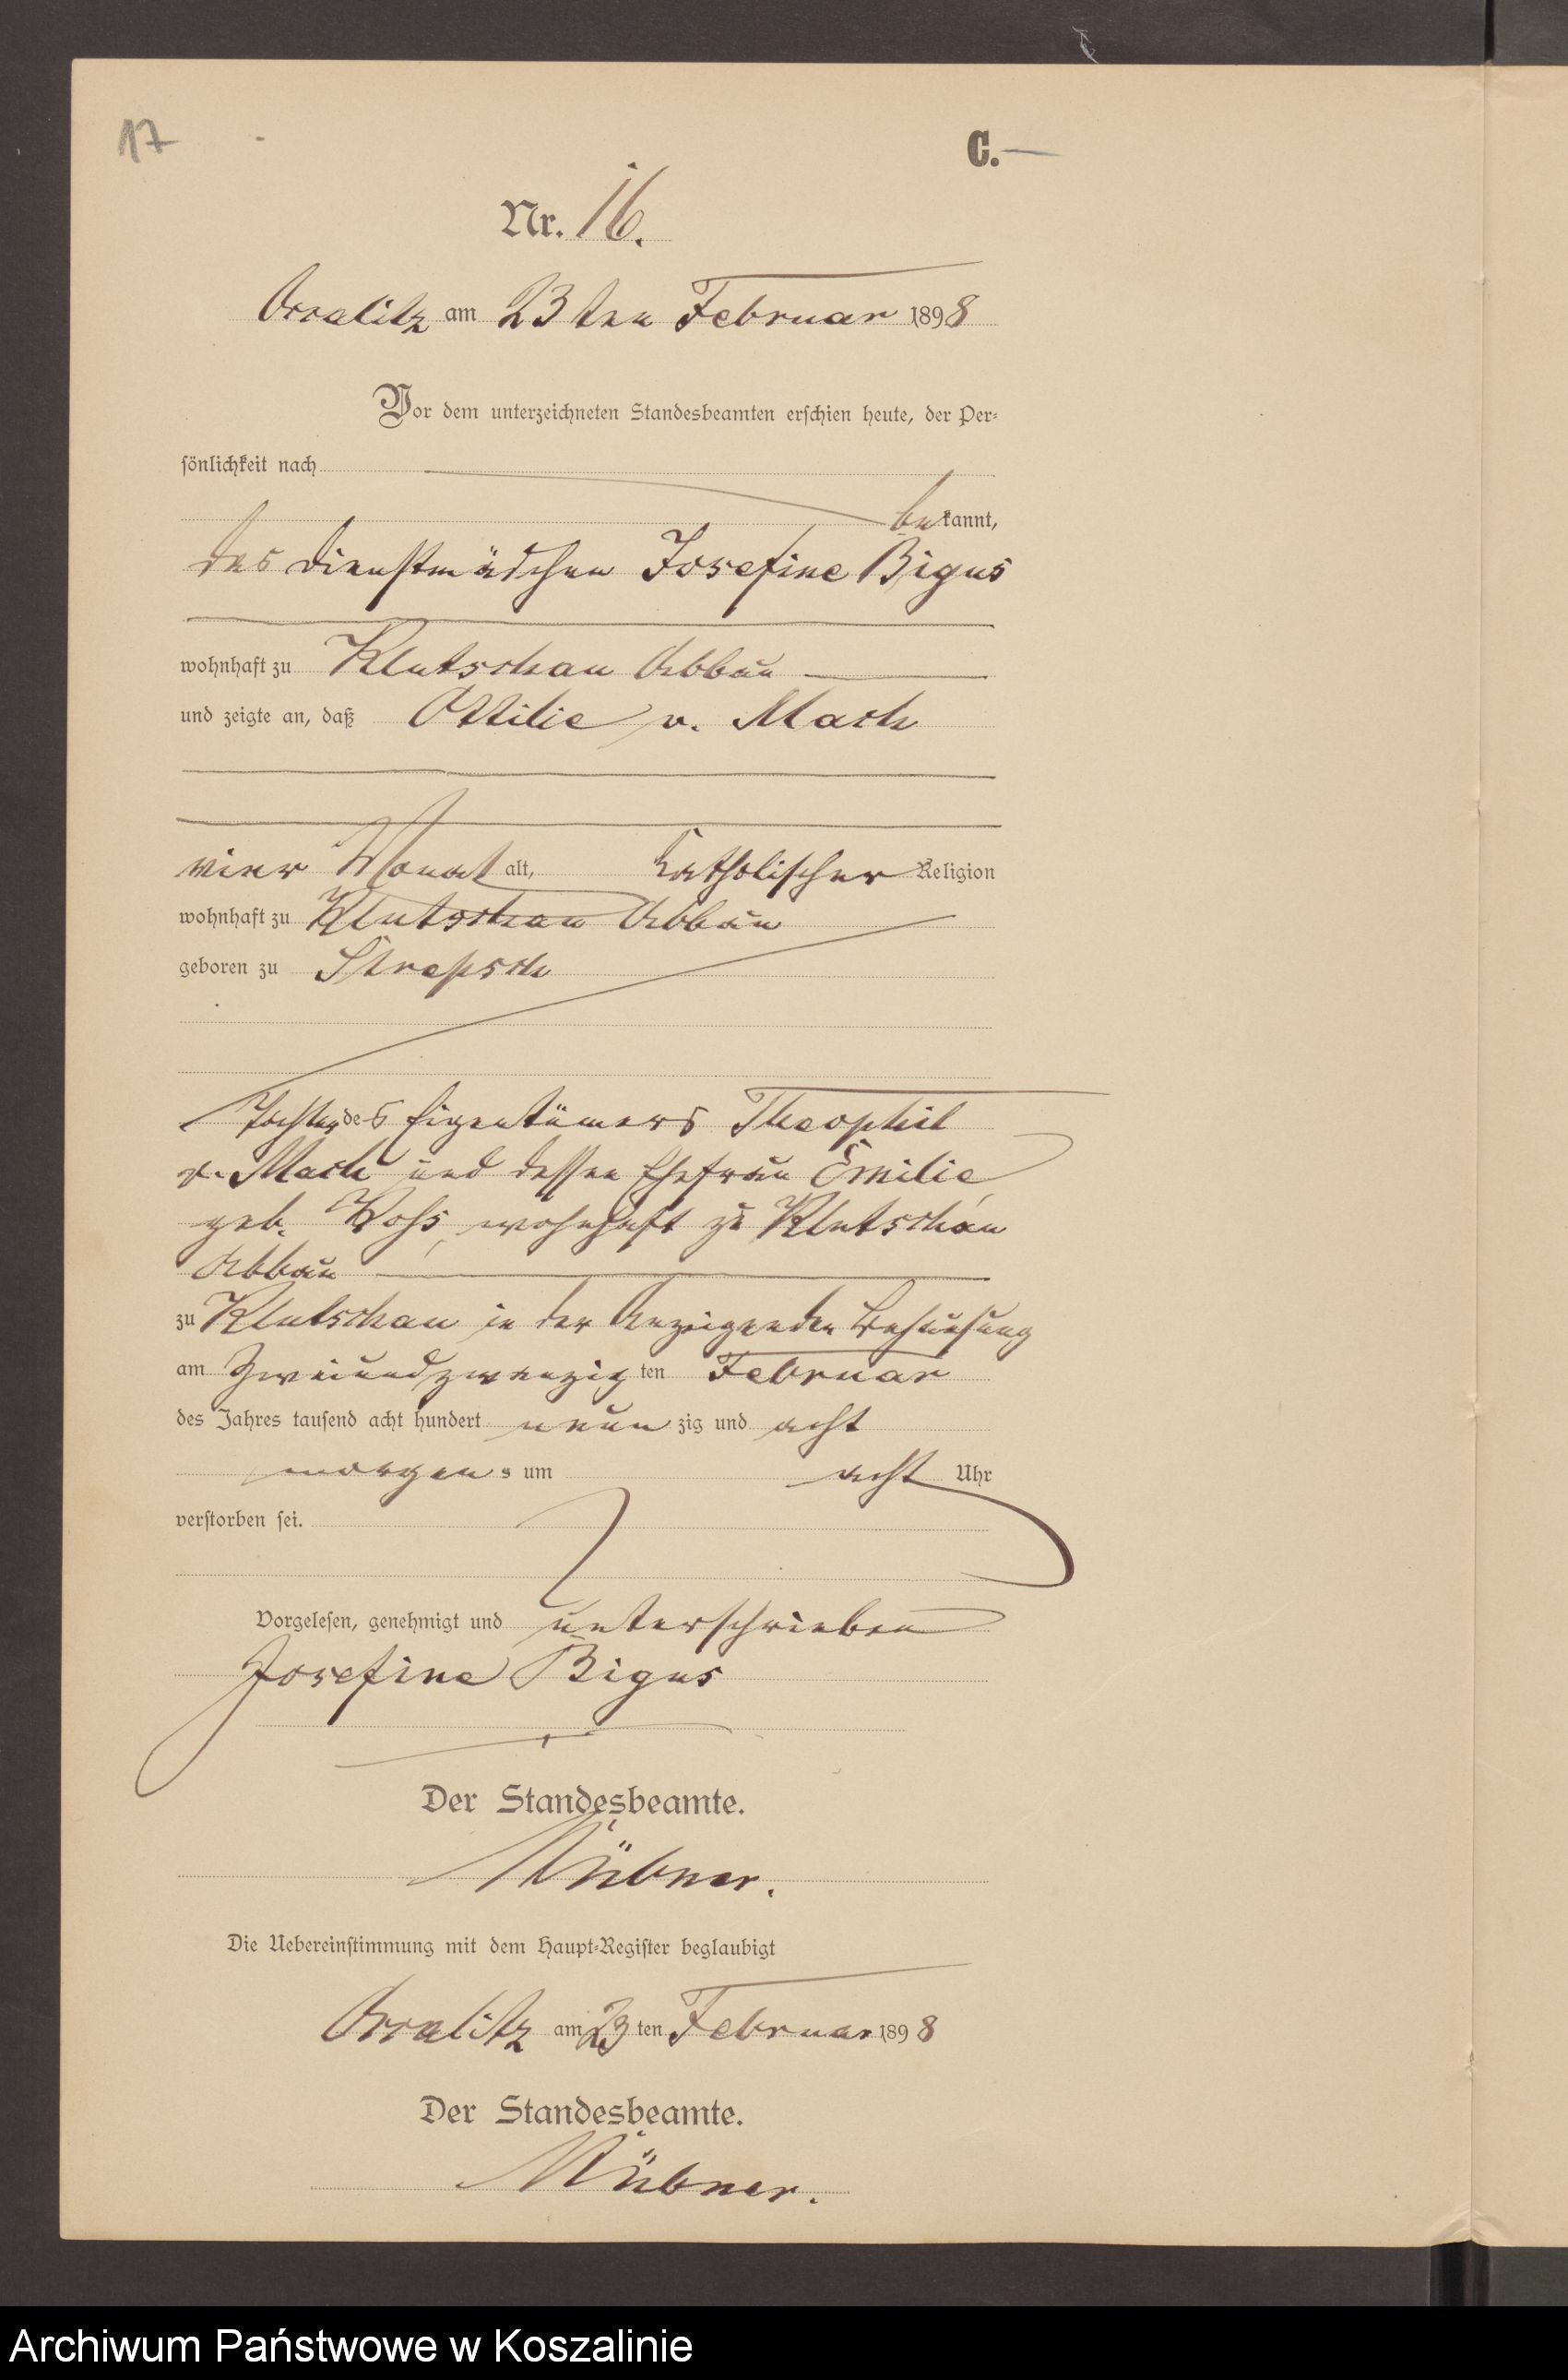 17
C.
Nr. 16.
Occalitz am 23ten Februar 1898
Vor dem unterzeichneten Standesbeamten erschien heute, der Per-
sönlichkeit nach
bekannt,
das Dienstmädchen Josefine Bigus
wohnhaft zu Klutschau Abbau
und zeigte an, daß Ottilie v. Mach
vier Monat alt, katholischer Religion
wohnhaft zu Klutschau Abbau
geboren zu Strepsch
Tochter des Eigentümers Theophil
v. Mach und dessen Ehefrau Emilie,
geb. Vohs, wohnhaft zu Klutschau
Abbau
zu Klutschau in der Anzeigenden Behausung
am zweiundzwanzigten Februar
des Jahres tausend acht hundert neunzig und acht
morgens um acht Uhr
verstorben sei.
Vorgelesen, genehmigt und unterschrieben
Josefine Bigus
Der Standesbeamte.
Die Uebereinstimmung mit dem Haupt-Register beglaubigt
Occalitz am 23ten Februar 1898
Der Standesbeamte.
Archiwum Państwowe w Koszalinie